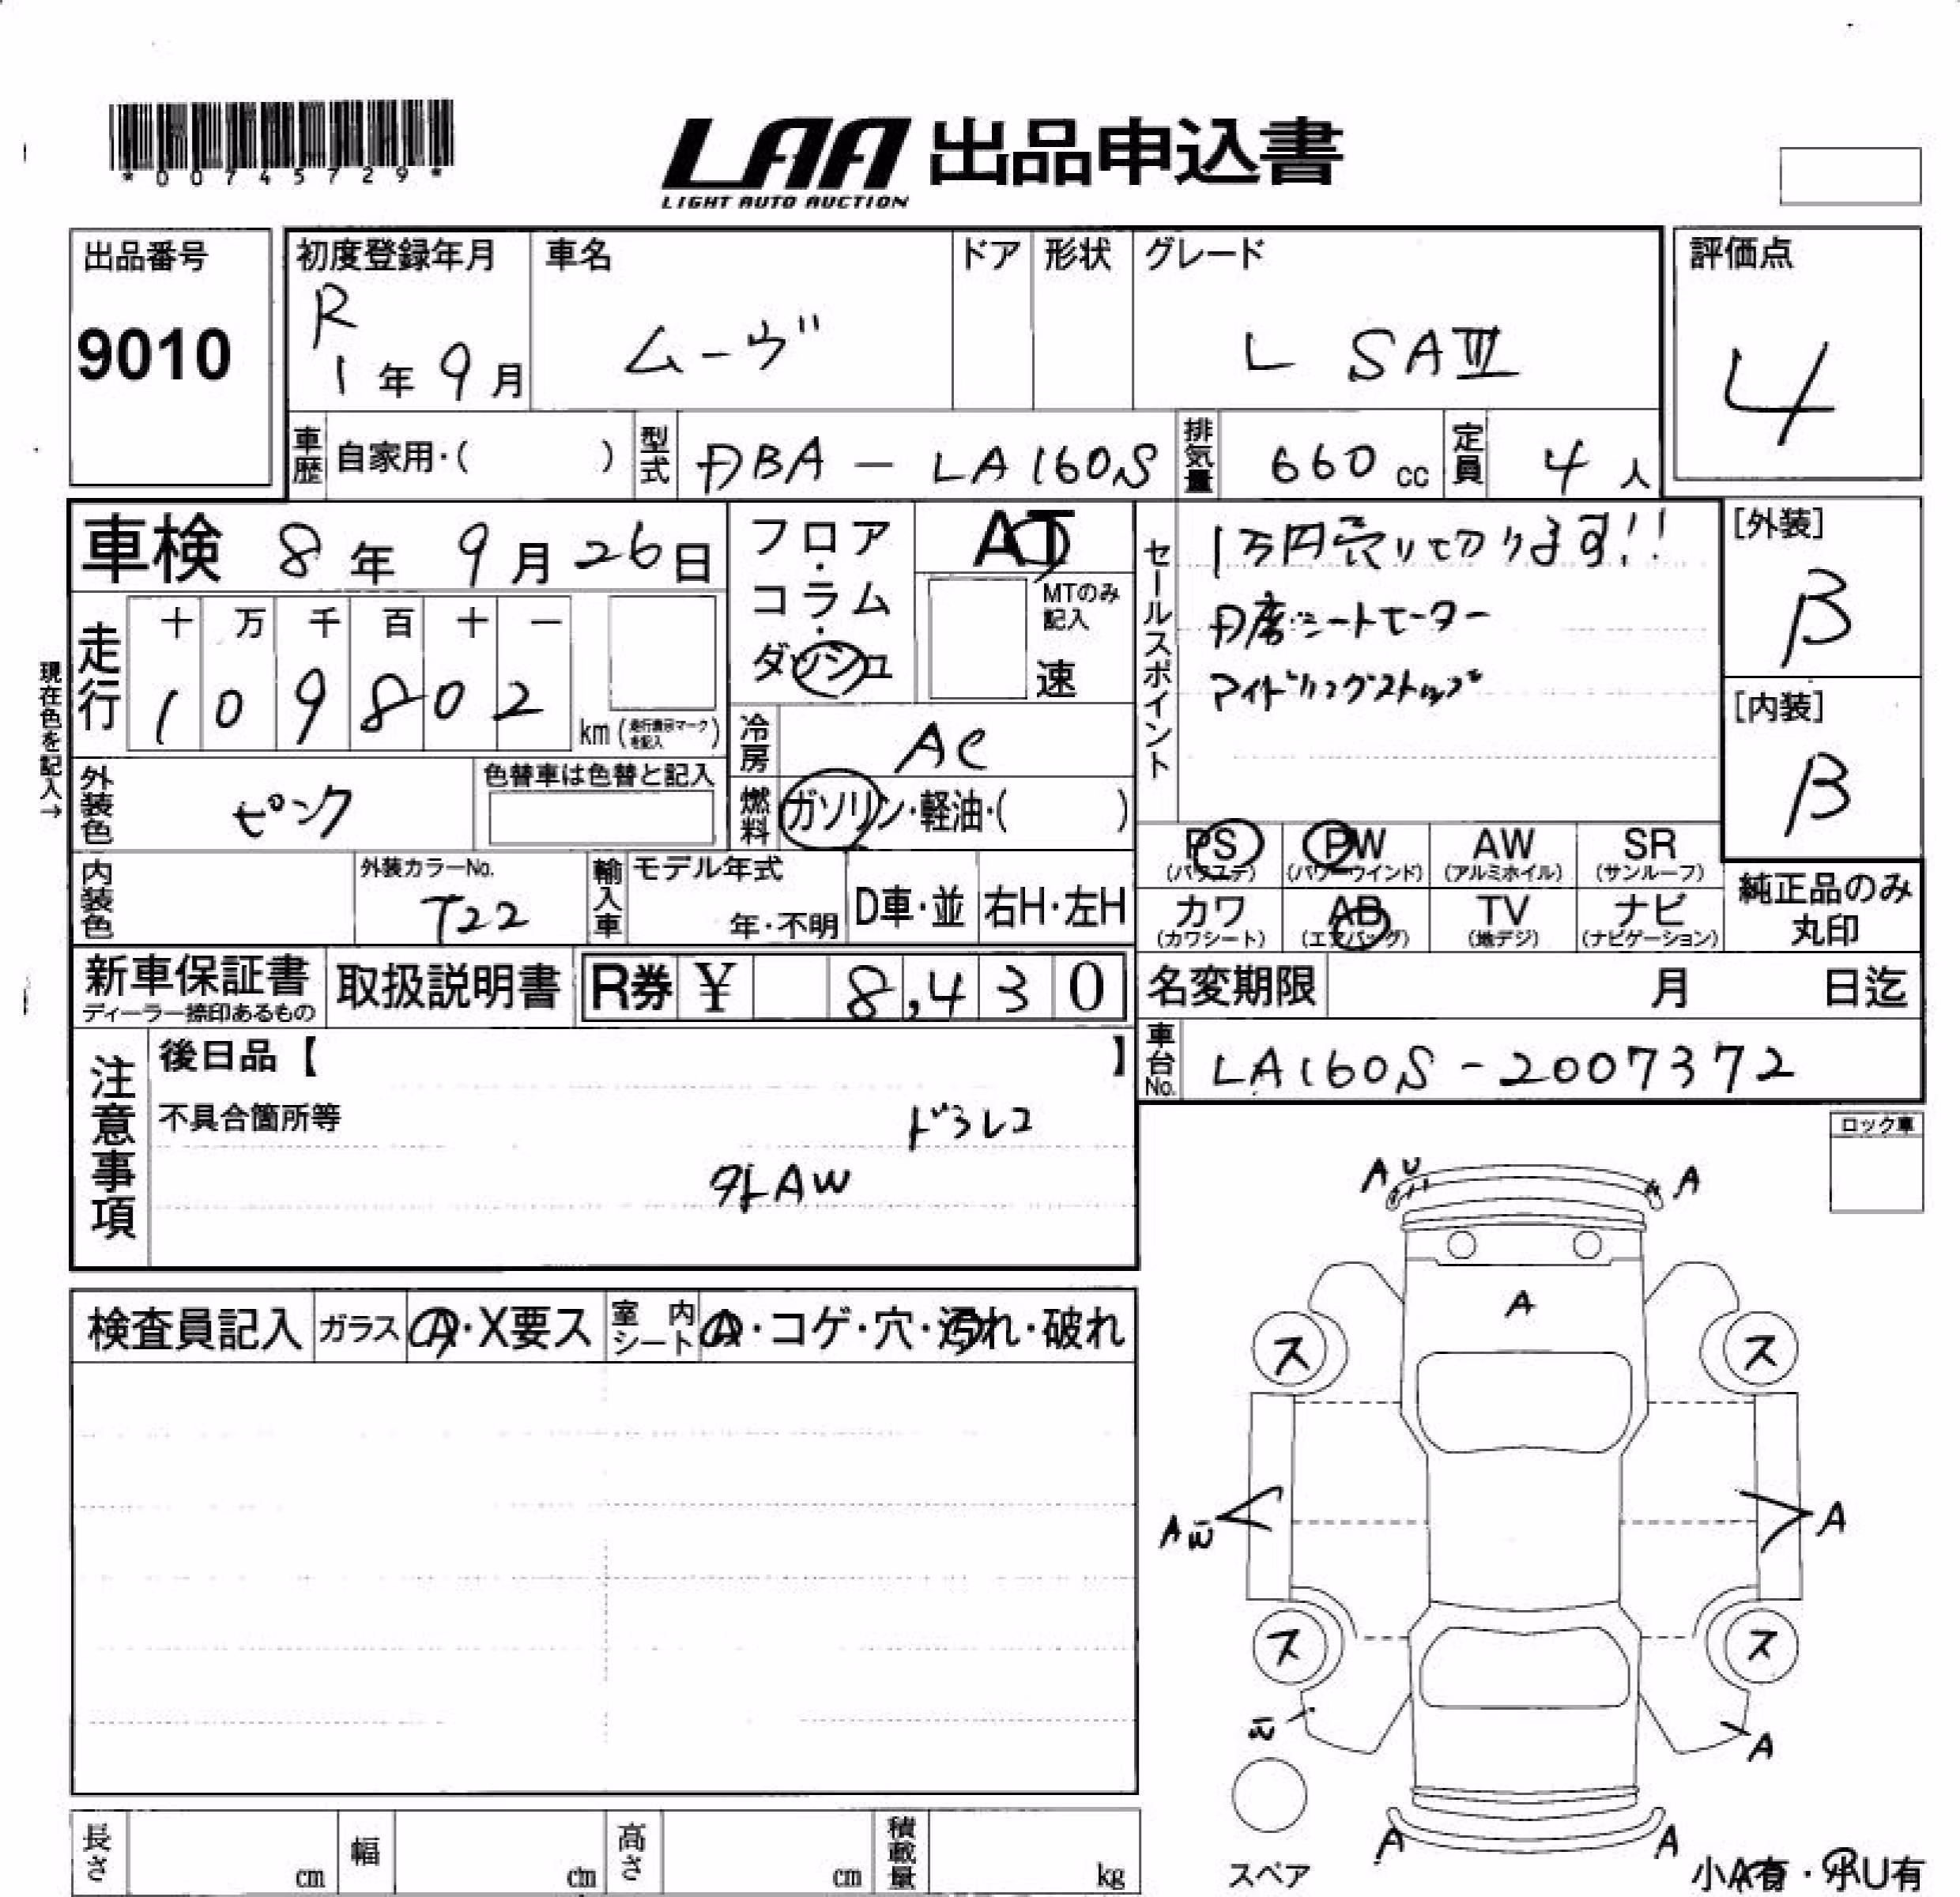 *00745729*
LAA 出品申込書
LIGHT AUTO AUCTION
出品番号
9010
初度登録年月
R
1年9月
車名
ムーヴ
ドア
形状
グレード
L SAⅢ
評価点
4
車歴
自家用・( )
型式
DBA - LA160S
排気量
660 cc
定員
4人
車検 8年 9月 26日
フロア・コラム・ダッシュ
AT
MTのみ記入
速
セールスポイント
1万円売り切ります!!
D席シートモーター
アイドリングストップ
[外装]
B
[内装]
B
現在色を記入→
走行
十 万 千 百 十 一
1 0 9 8 0 2
km (走行表示マークを記入)
冷房
AC
外装色
ピンク
色替車は色替と記入
燃料
ガソリン・軽油・( )
PS
(パワステ)
PW
(パワーウインド)
AW
(アルミホイル)
SR
(サンルーフ)
カワ
(カワシート)
AB
(エアバッグ)
TV
(地デジ)
ナビ
(ナビゲーション)
純正品のみ
丸印
内装色
外装カラーNo.
T22
輸入車
モデル年式
年・不明
D車・並
右H・左H
新車保証書
ディーラー捺印あるもの
取扱説明書
R券 ¥ 8,430
名変期限 月 日迄
車台No.
LA160S-2007372
注意事項
後日品【 】
不具合箇所等
ドラレコ
外AW
ロック車
検査員記入
ガラス
A・X要ス
室内シート
A・コゲ・穴・汚れ・破れ
A U
A
A
ス
ス
A
A
ス
ス
A
A
A
スペア
小A有・小U有
長さ
cm
幅
cm
高さ
cm
積載量
kg